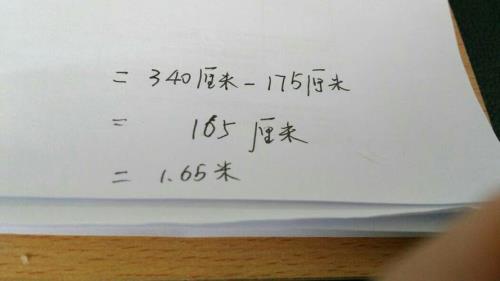 = 340厘米-175厘米
= 165厘米
= 1.65米